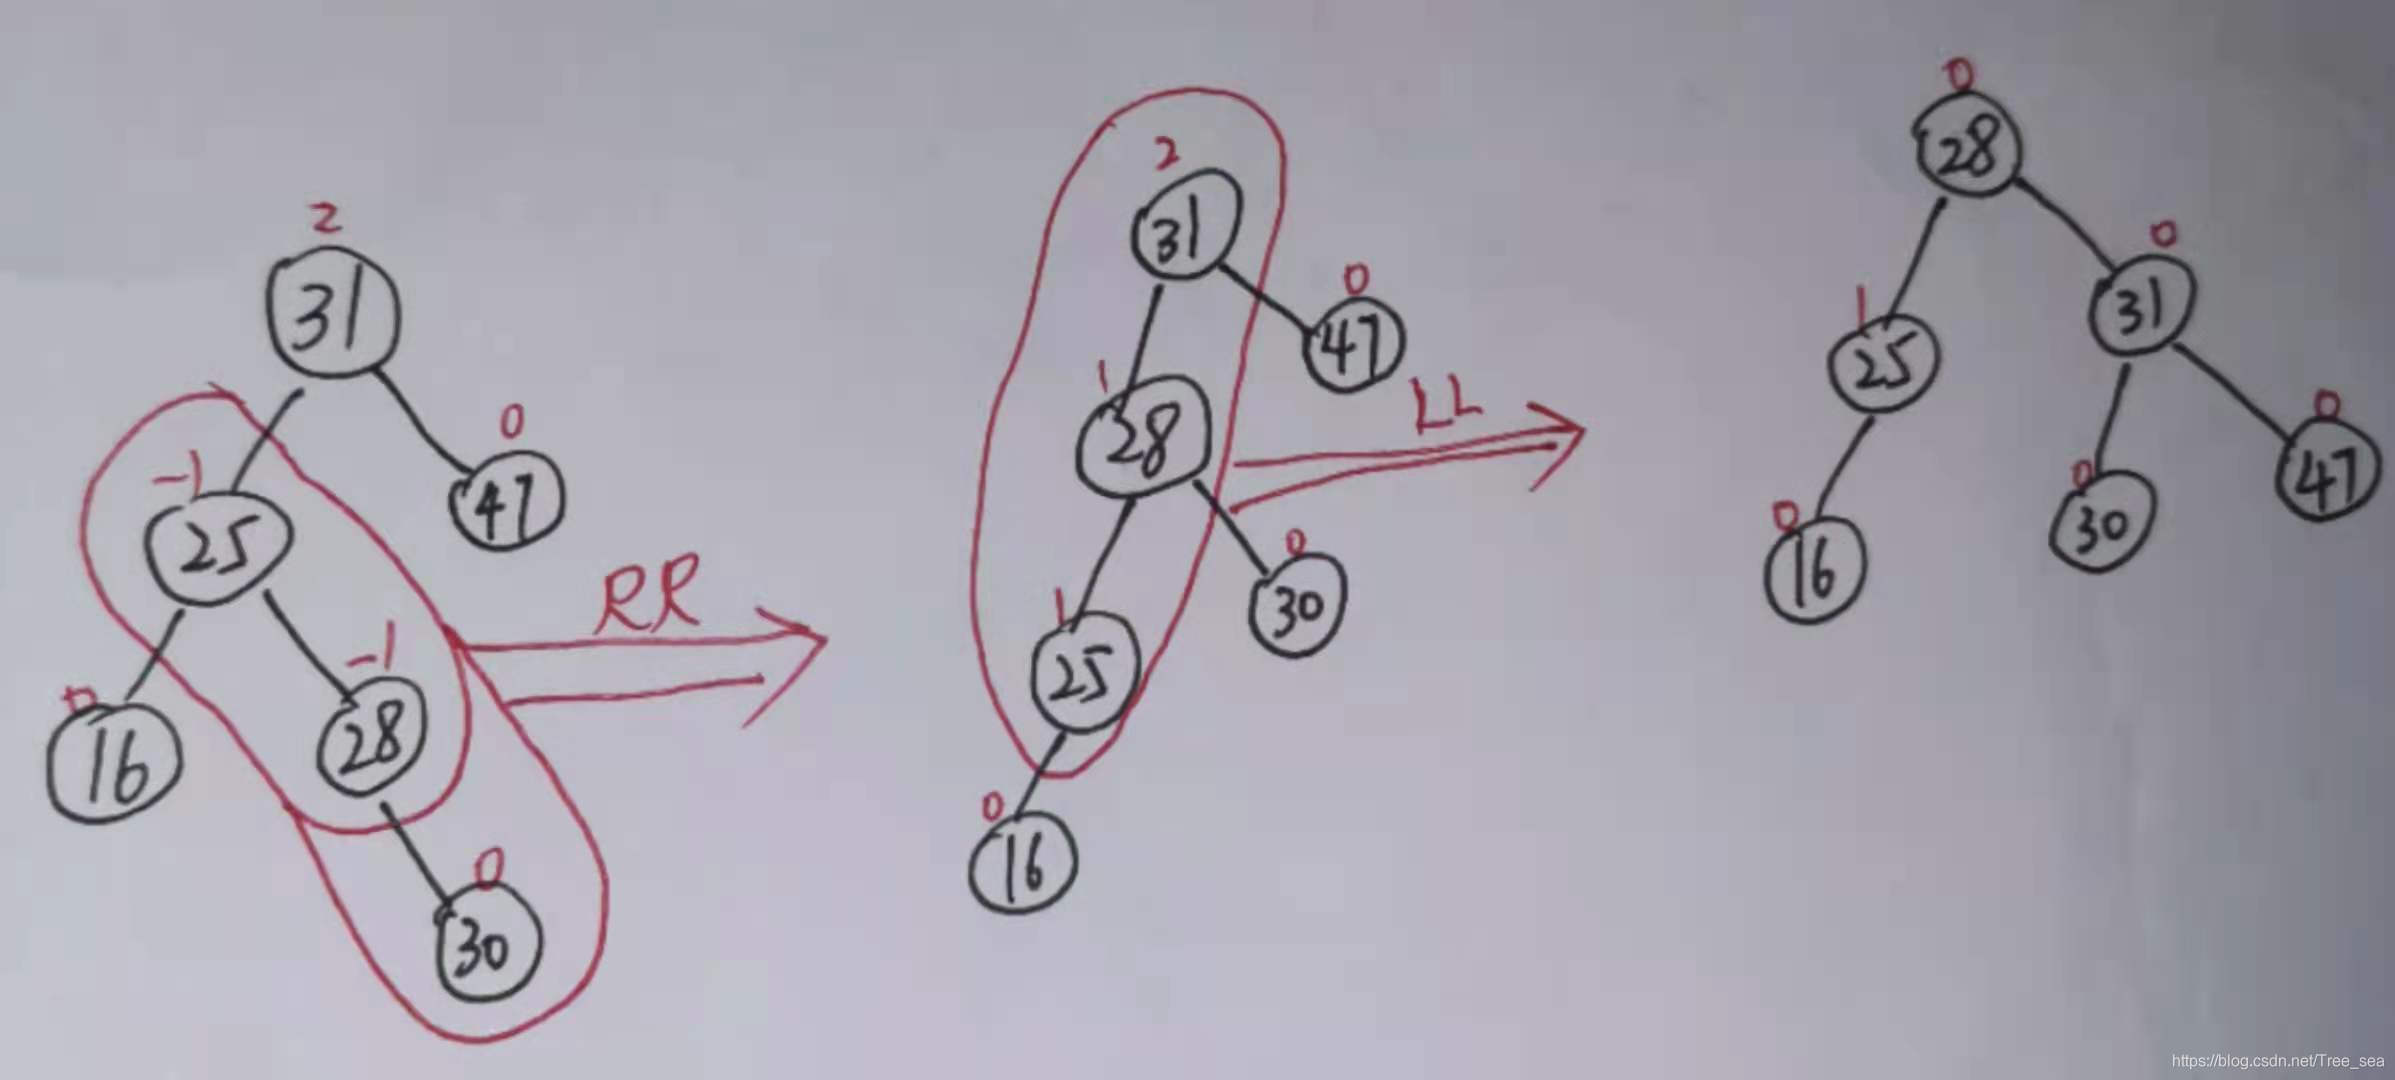 2
31
0
47
-1
25
-1
28
0
16
0
30
RR
2
31
0
47
1
28
0
30
1
25
0
16
LL
0
28
0
31
1
25
0
47
0
30
0
16
https://blog.csdn.net/Tree_sea